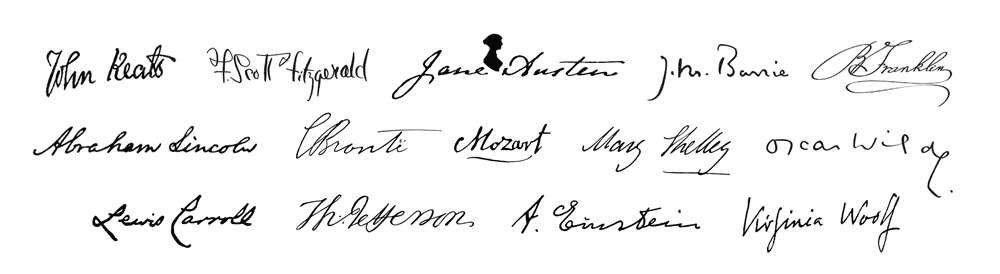 John Keats F. Scott Fitzgerald Jane Austen J.M. Barrie B Franklin
Abraham Lincoln CBrontë Mozart Mary Shelley Oscar Wilde.
Lewis Carroll Th. Jefferson A. Einstein Virginia Woolf